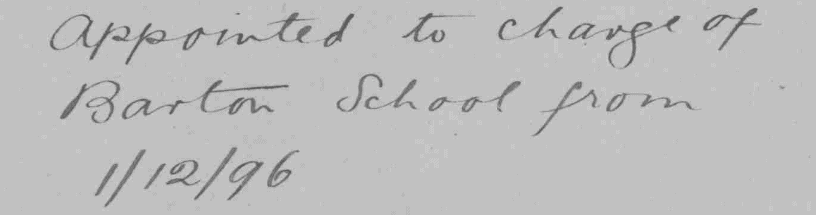 Appointed to charge of
Barton School from
1/12/96